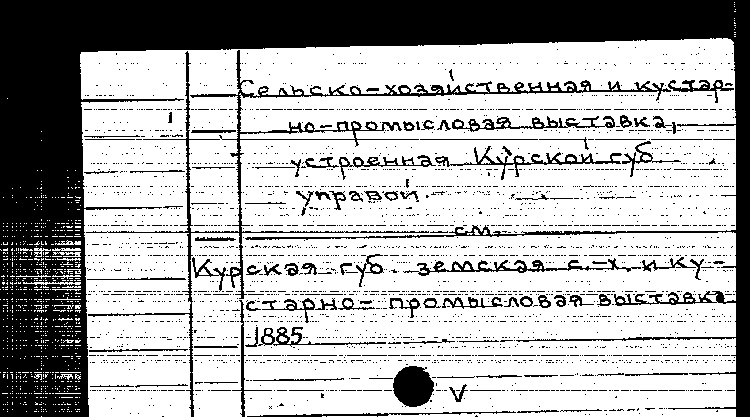 Сельско-хозяйственная и кустар-
но-промысловая выставка,
устроенная Курской губ.
управой.
см.
Курская губ. земская с.-х. и ку-
старно-промысловая выставка
1885.
V